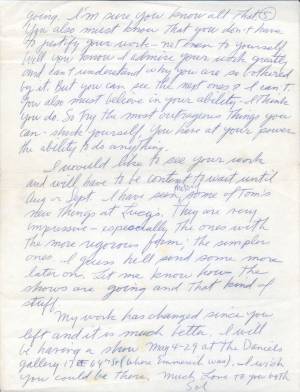 going. I'm sure you know all that. 5
You also must know that you don't have
to justify your work - not even to yourself.
Well you know I admire your work greatly
and can't understand why you are so bothered
by it. But you can see the next ones & I can't.
You also must believe in your ability. I think
you do. So try the most outrageous things you
can - shock yourself. You have at your power
the ability to do anything.
I would like to see your work
and will have to be content to wait until
Aug or Sept. I have seen photos of some of Tom's
new things at Lucy's. They are very
impressive - especially the ones with
the more rigorous form; the simpler
ones. I guess he'll send some more
later on. Let me know how the
shows are going and that kind of
stuff.
My work has changed since you
left and it is much better. I will
be having a show May 4-29 at the Daniels
gallery 17 E 64th St (where Emmerich was). I wish
you could be there. Much Love to you both.
Sol